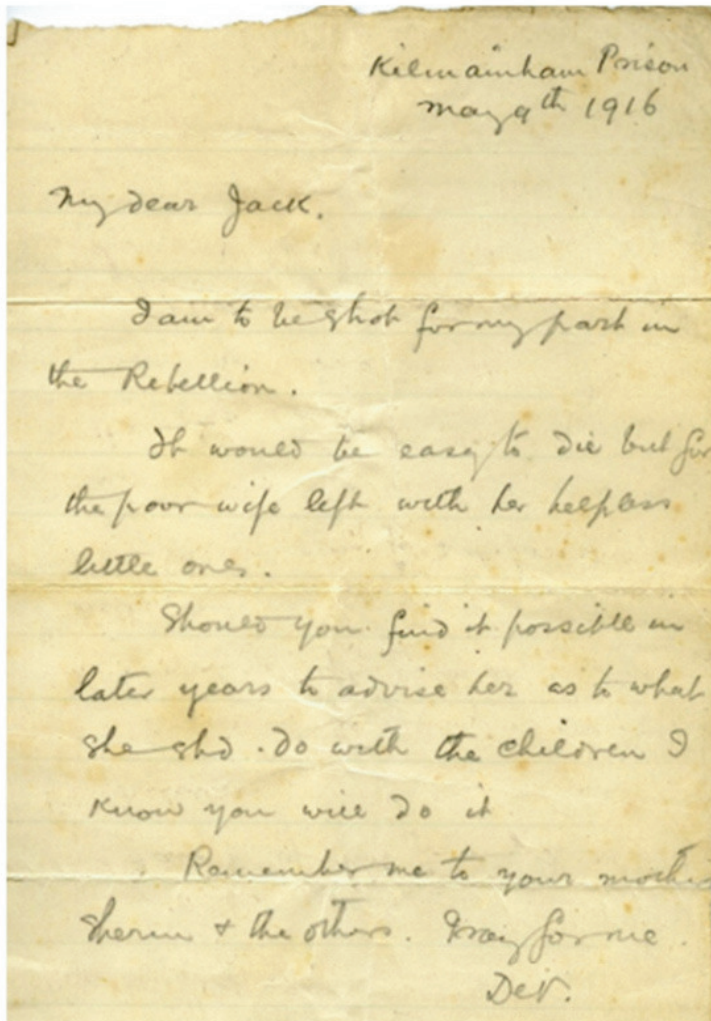 Kilmainham Prison
May 9th 1916
My dear Jack.
I am to be shot for my part in
the Rebellion.
It would be easy to die but for
the poor wife left with her helpless
little ones.
Should you find it possible in
later years to advise her as to what
she shd. do with the children I
know you will do it
Remember me to your mother
& the others. Pray for me
DeV.